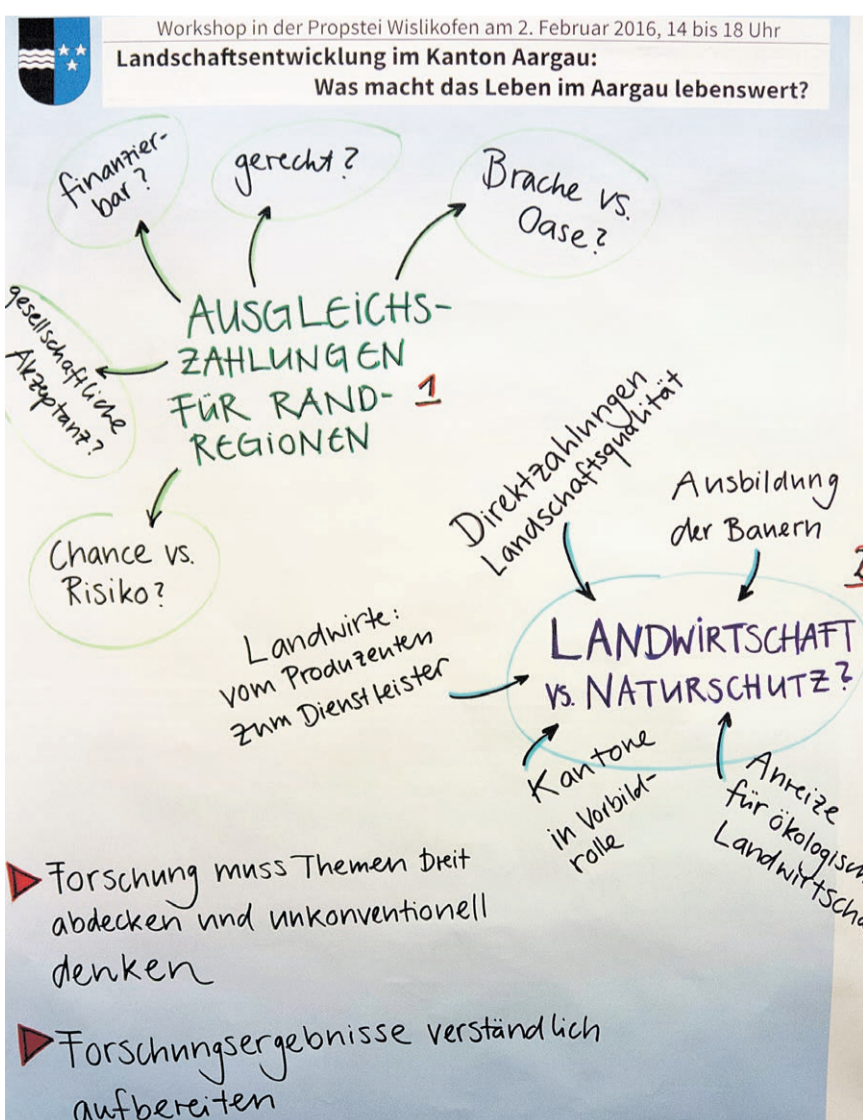 Workshop in der Propstei Wislikofen am 2. Februar 2016, 14 bis 18 Uhr
Landschaftsentwicklung im Kanton Aargau:
Was macht das Leben im Aargau lebenswert?
finanzier-
bar?
gerecht?
Brache vs.
Oase?
gesellschaftliche
Akzeptanz?
AUSGLEICHS-
ZAHLUNGEN
FÜR RAND- 1
REGIONEN
Chance vs.
Risiko?
Direktzahlungen
Landschaftsqualität
Ausbildung
der Bauern
2
Landwirte:
vom Produzenten
zum Dienstleister
LANDWIRTSCHAFT
VS. NATURSCHUTZ?
Kantone
in Vorbild-
rolle
Anreize
für ökologisch
Landwirtscha
Forschung muss Themen breit
abdecken und unkonventionell
denken
Forschungsergebnisse verständlich
aufbereiten